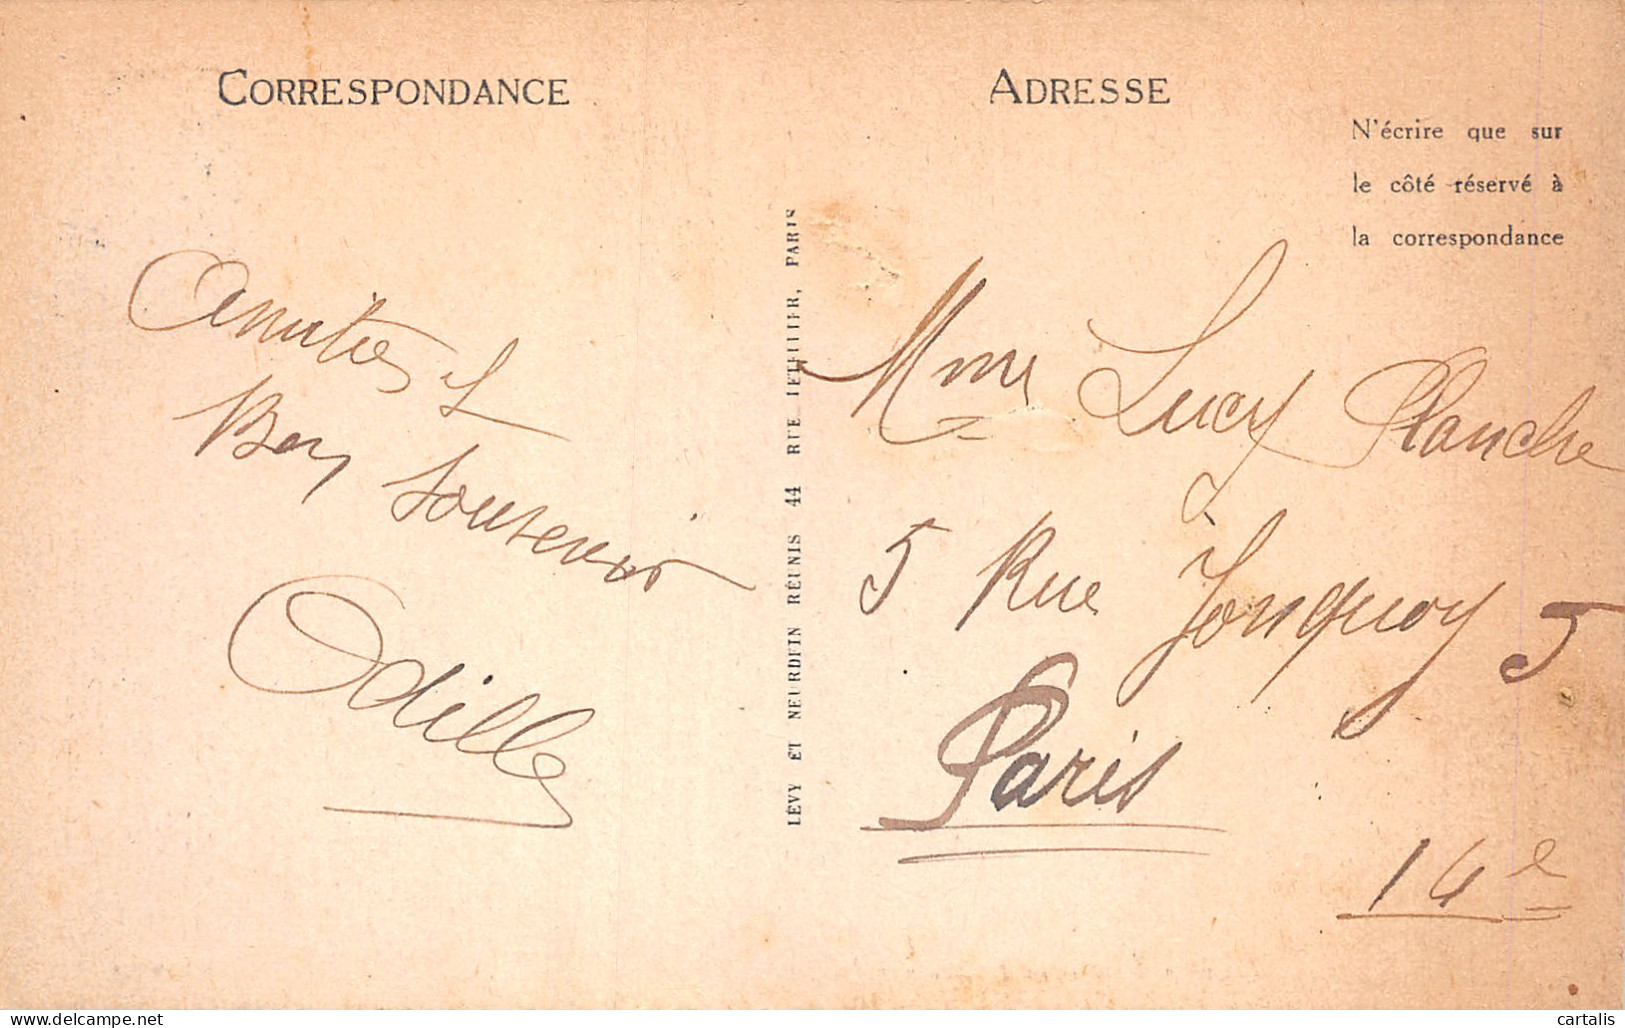 CORRESPONDANCE
Amitiés &
Bon Souvenir
Odille
LÉVY ET NEURDEIN RÉUNIS 44 RUE LETELLIER, PARIS
ADRESSE
N'écrire que sur
le côté réservé à
la correspondance
Mme Lucy Planche
5 Rue Jonquoy 5
Paris
14e
www.delcampe.net
cartalis